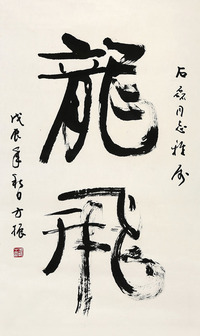 龍飛
石磊同志雅属
戊辰年秋日方振